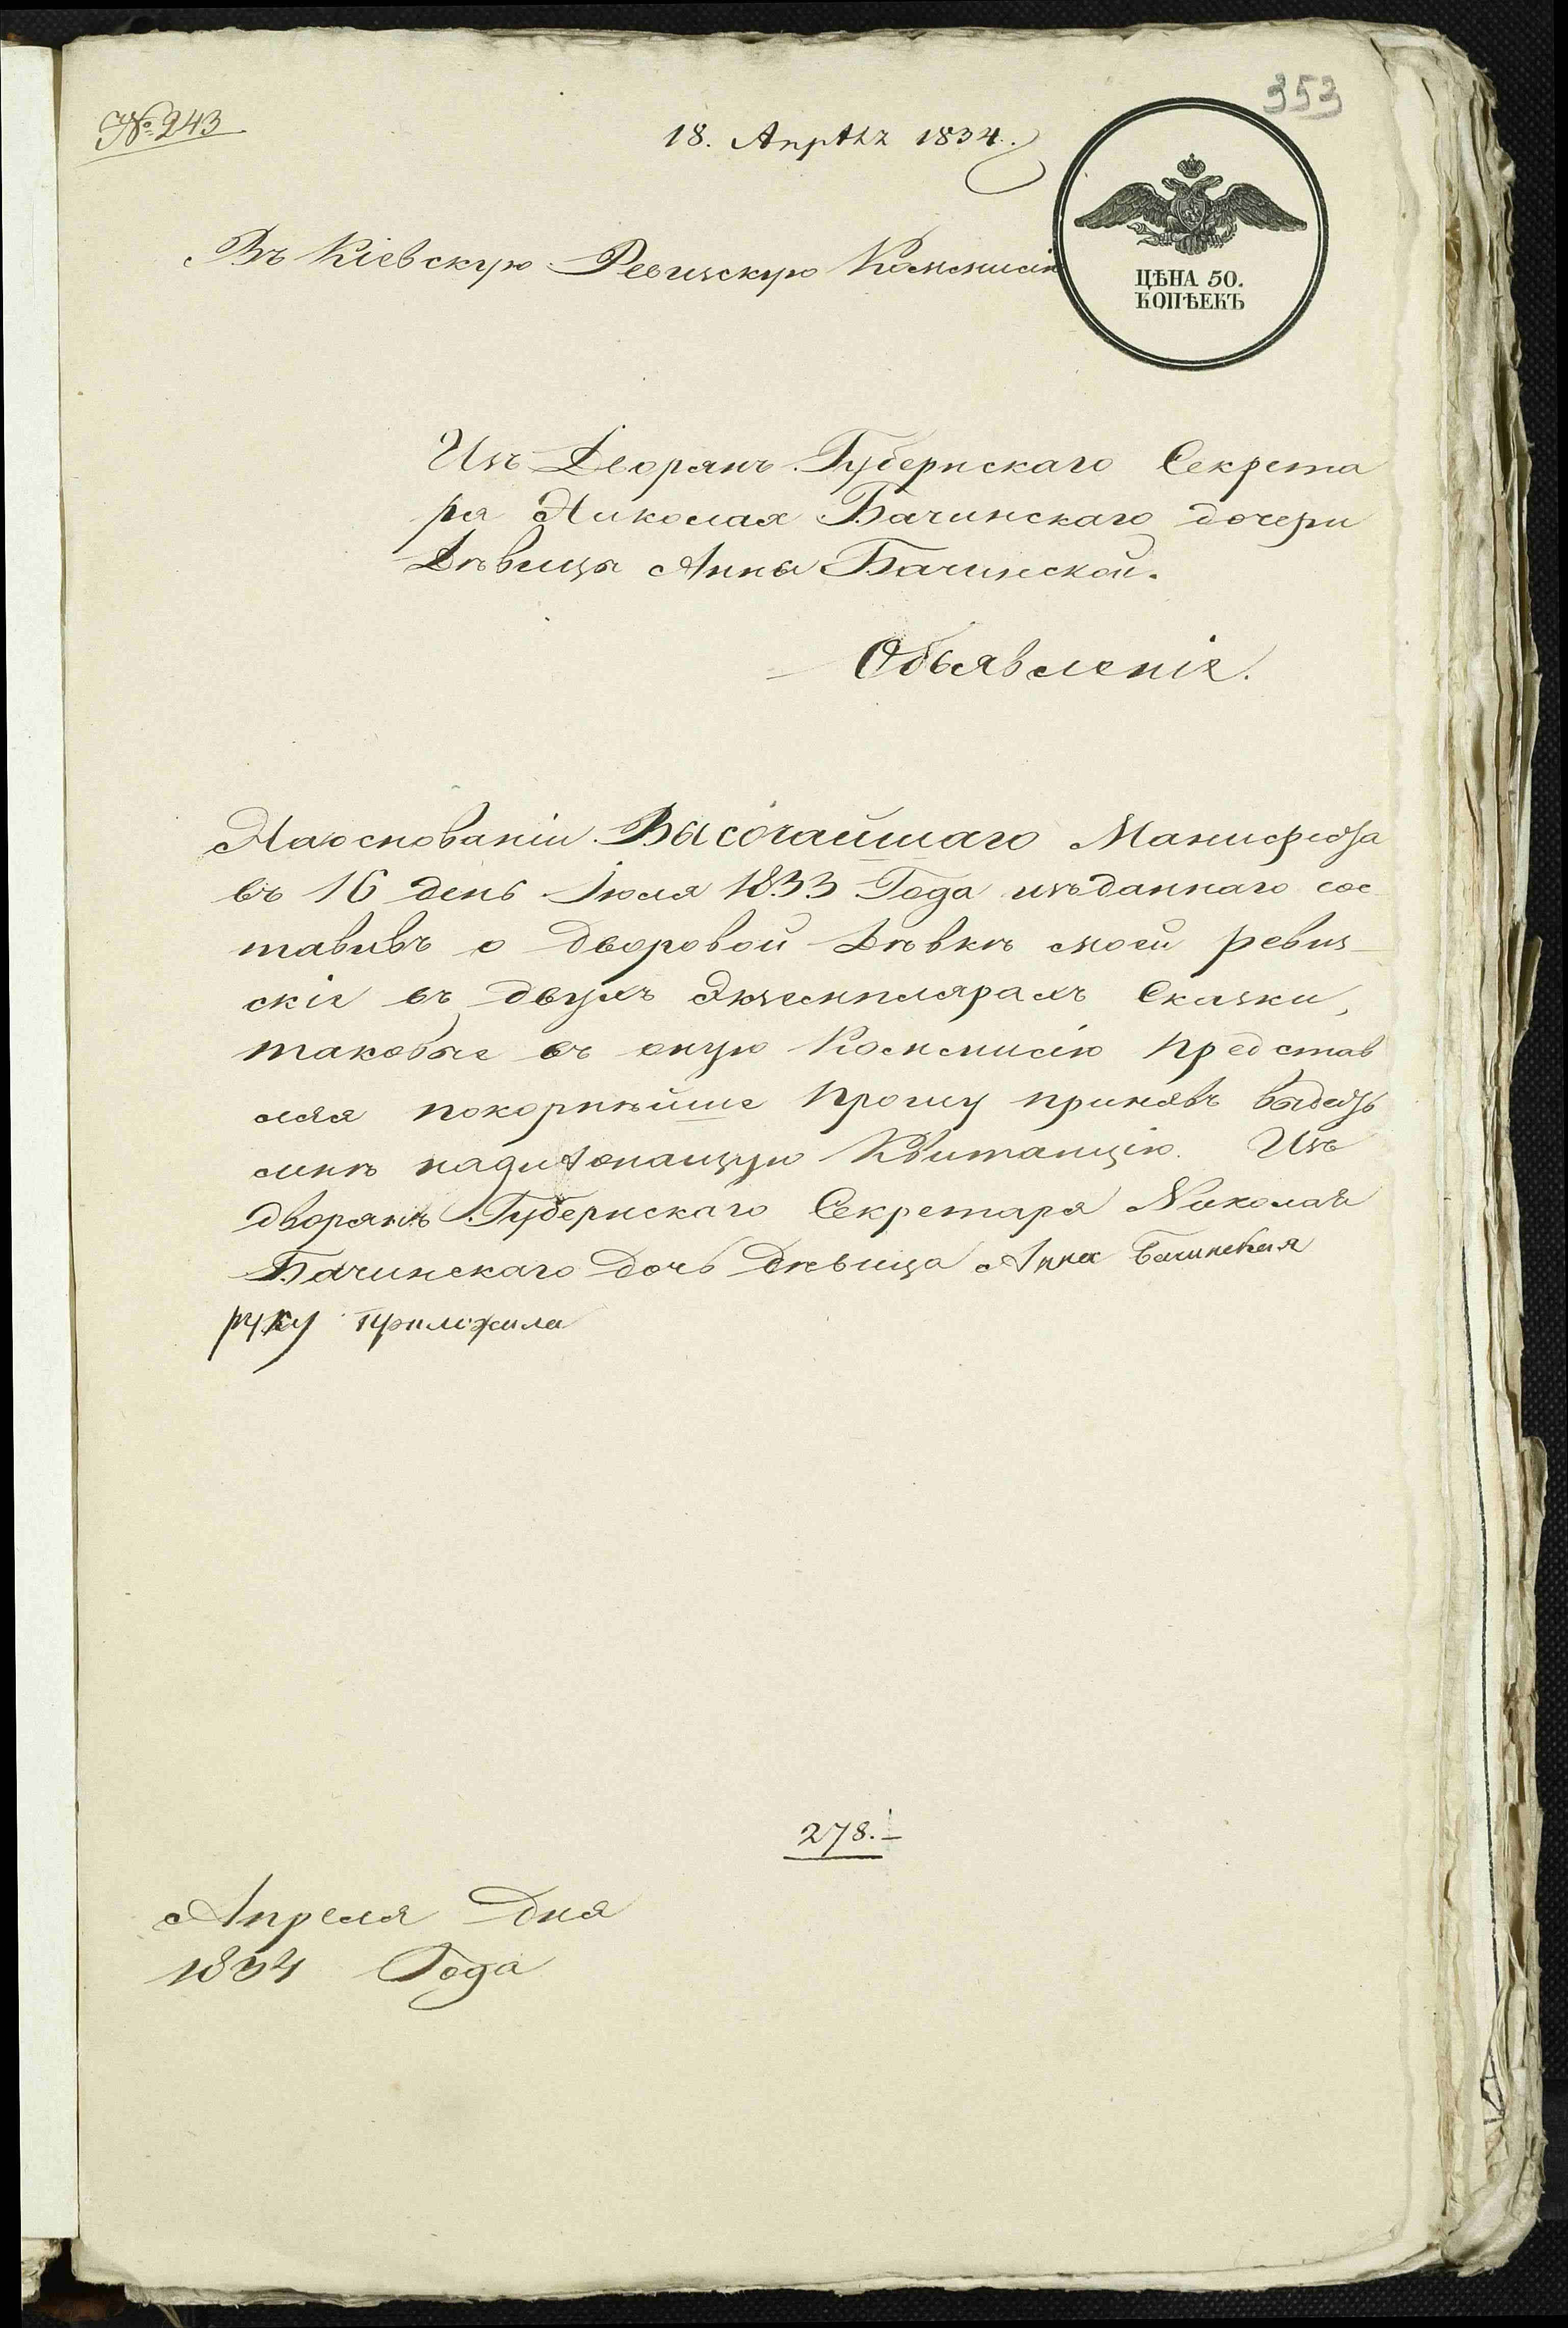 353
№ 243
18. Апрѣля 1834.
Въ Кіевскую Ревизскую Коммисію
ЦѢНА 50.
КОПѢЕКЪ
Изъ Дворянъ Губернскаго Секрета
ря Николая Бачинскаго дочери
Дѣвицы Анны Бачинской.
Объявленіе.
На основаніи Высочайшаго Манифеста
въ 16 день Іюля 1833 Года изъданнаго сос
тавивъ о дворовой Дѣвкѣ моей ревиз
скіе въ двухъ Экземплярахъ Сказки,
таковые въ оную Коммисію представ
ляя покорнѣйше прошу принявъ выдать
мнѣ надлежащую Квитанцію. Изъ
дворянъ Губернскаго Секретаря Николая
Бачинскаго дочь дѣвица Анна Бачинская
руку приложила
278.-
Апреля Дня
1834 Года